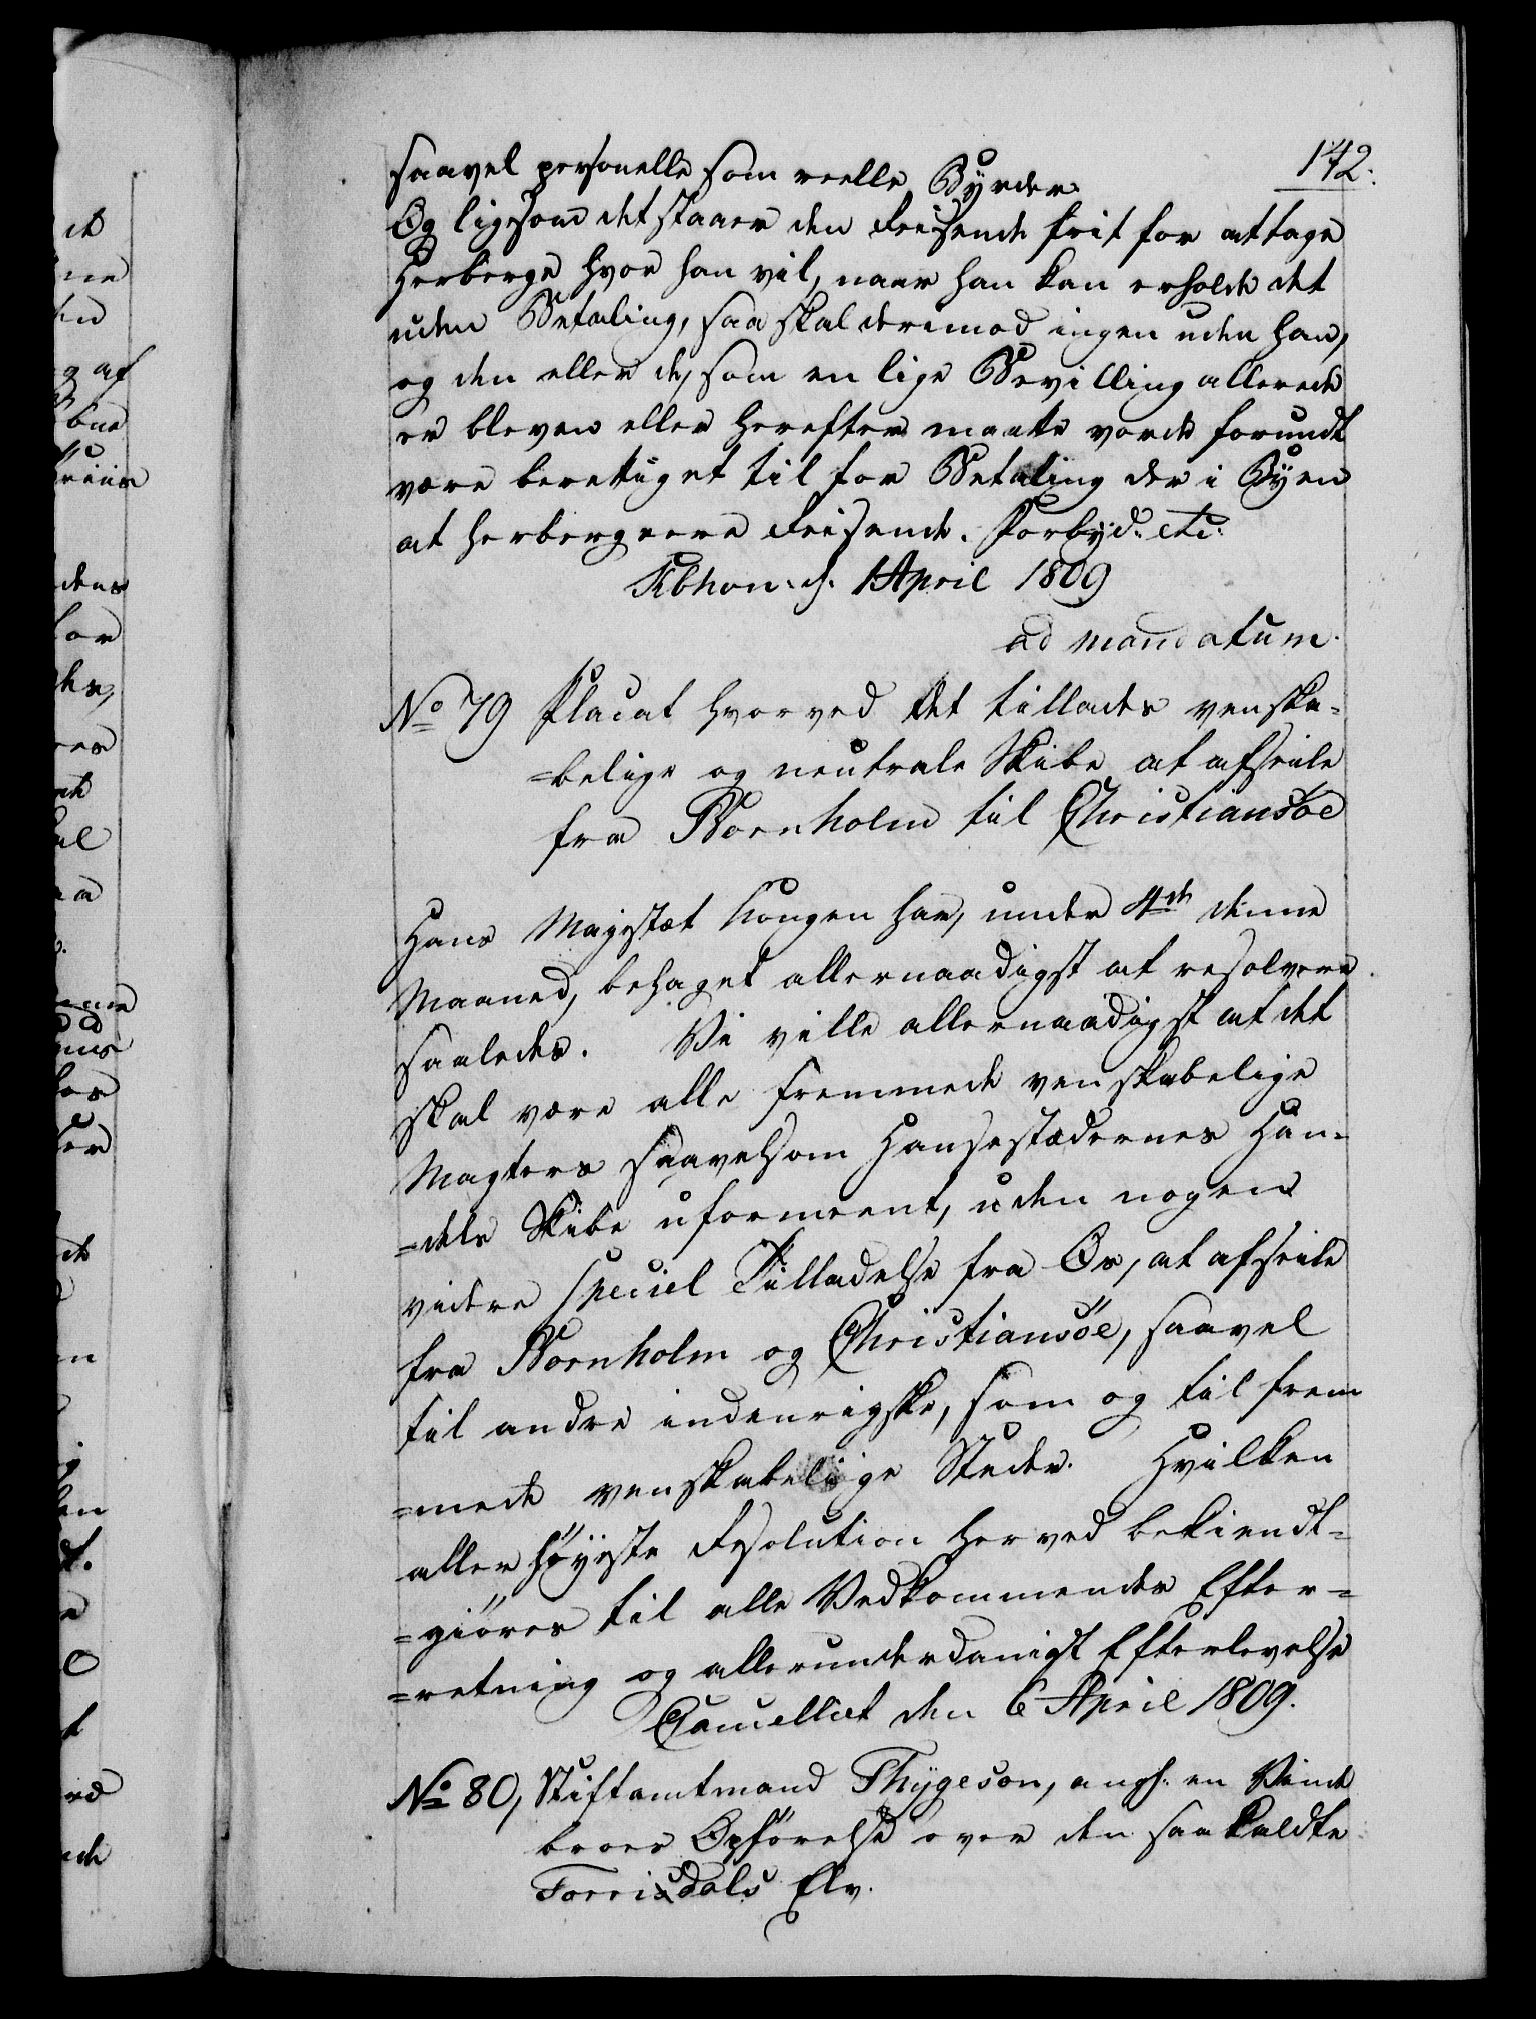 142.
saavel personelle som reelle Byrder.
Og ligesom det staaer den Reisende frit for at tage
Herberge hvor han vil, naar han kan erholde det
uden Betaling, saa skal derimod ingen uden han,
og den eller de, som en lige Bevilling allerede
er bleven eller herefter maatte vorde forundt
være berettiget til for Betaling der i Byen
at herbergeere Reisende. Forbyd: etc:
Kbhavn. d. 1 April 1809
ad mandatum.
No 79 Placat hvorved det tillades venska-
=belige og neutrale Skibe at afseile
fra Bornholm til Christiansöe
Hans Majestæt Kongen har, under 4de denne
Maaned, behaget allernaadigst at resolvere
saaledes. Vi ville allernaadigst at det
skal være alle fremmede venskabelige
Magters saavelsom Hansestædernes Han-
=dels Skibe uformeent, uden nogen
videre speciel Tilladelse fra Os, at afseile
fra Bornholm og Christiansöe, saavel
til andre indenrigske, som og til frem
=mede venskabelige Steder. Hvilken
allerhöyeste Resolution herved bekiendt-
=giöres til alle Vedkommendes Efter-
=retning og allerunderdanigst Efterlevelse
Cancelliet den 6 April 1809.
No 80, Stiftamtmand Thygeson, angh. en Vinde
broes Opförelse over den saakaldte
Torrisdals Elv.